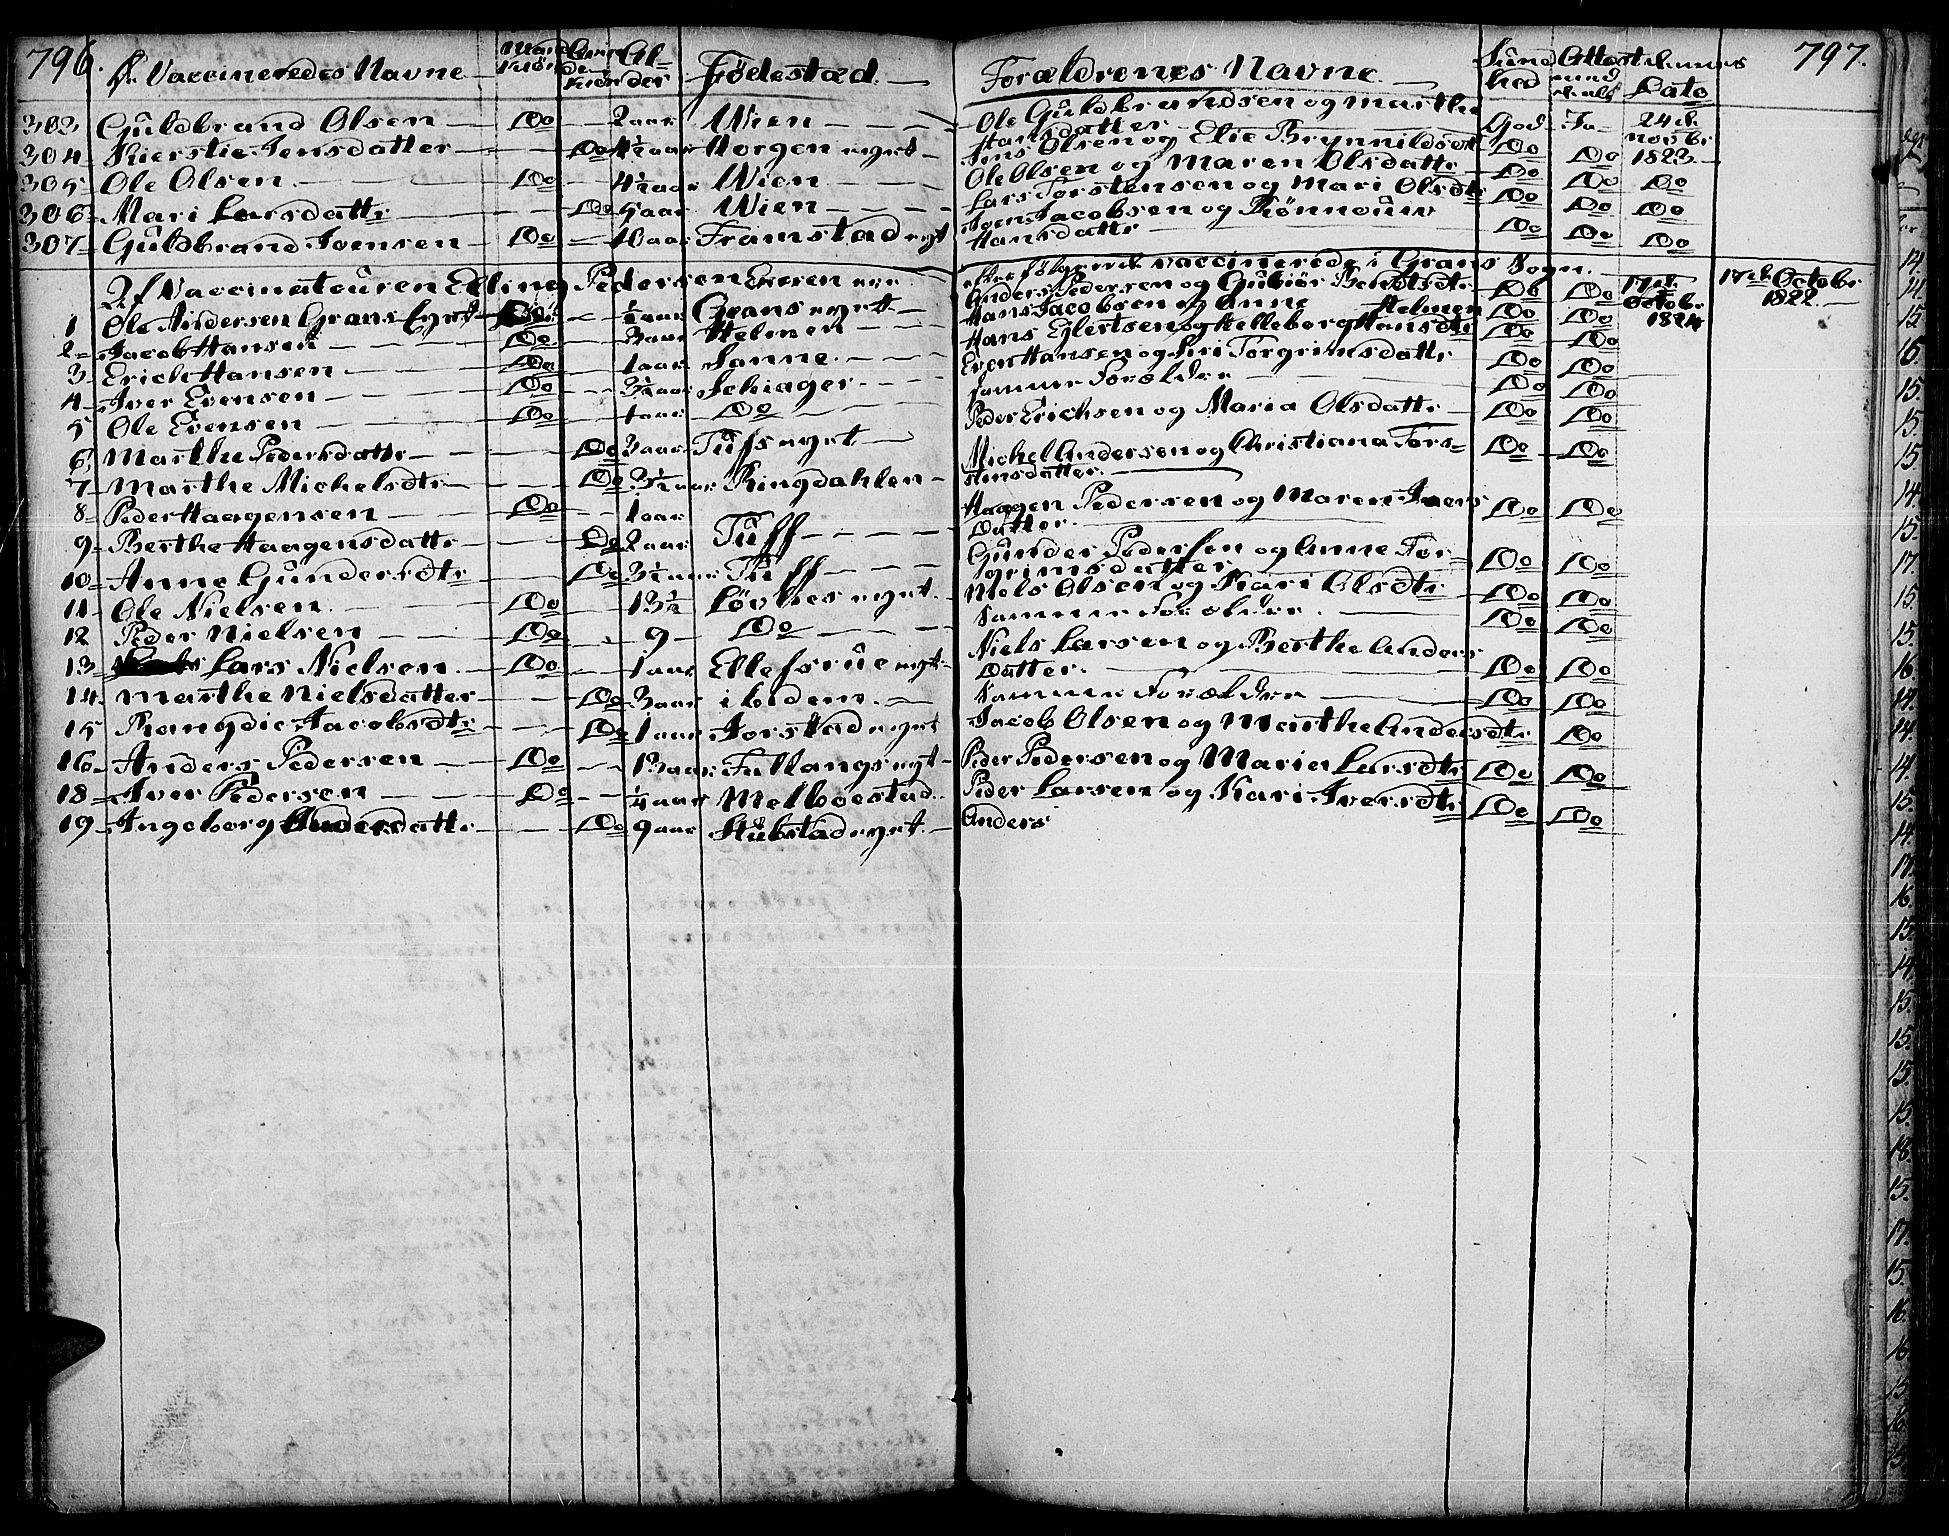 796.
De Vaccineredes Navne Mandkiön Qvindekiön Alder Födestæd.
303 Guldbrand Olsen Do 2 aar Wien
304 Kierstie Jensdatter Do 4½ aar Horgen eyet
305 Ole Olsen Do 4½ aar Wien
306 Mari Larsdattr Do 5 aar Wien
307 Guldbrand Joensen Do 10 aar Framstad eyet
Af Vaccinateuren Elling Pedersen Egeren ere
1 Ole Andersen Grans Eyet Do ½ aar Grans eyet
2 Jacob Hansen Do 3 aar Helmen
3 Erich Hansen Do 1 aar Sanne
4 Iver Evensen Do 3½ aar Schiager
5 Ole Evensen Do 1 aar Do
6 Marthe Pedersdattr Do 3 aar Tufs eyet
7 Marthe Michelsdtr Do 3½ aar Ringdahlen
8 Peder Haagensen Do 1 aar
9 Berthe Haagensdattr Do 2 aar Tuff
10 Anne Gundersdtr Do 3½ aar Tuff
11 Ole Nielsen Do 13½ Lövlies eyet
12 Peder Nielsen Do 9 Do
13 Lars Nielsen Do 1 aar Ellefsrue eyet
14 Marthe Nielsdatter Do 3 aar ibidem
15 Rangdie Jacobsdtr Do 1 aar Jorstad eyet
16 Anders Pedersen Do 13 aar Futlangs eyt
18 Iver Pedersen Do ¼ aar Melboestad
19 Ingeborg Andersdattr Do 9 aar Stubstad eyet
797.
Forældrenes Navne Sundhed Attest Dato
Ole Guldbrandsen og Marthe
Hansdatter God Ja 24de Novbr 1823
Jens Olsen og Elie Brynnildsdtr Do Do
Ole Olsen og Maren Olsdattr Do Do Do
Lars Torstensen og Mari Olsdtr Do Do Do
Joen Jacobsen og Rönnouw
Hansdattr Do Do Do
efterfölgende vaccinerede i Grans Sogn.
Anders Pedersen og Gubiör Bendtsdtr Do Do 17de Octobr 1824 17de Octobr 1822
Hans Jacobsen og Anne Helmen Do Do
Hans Eglertsen og Helleborg Hansdtr Do Do
Even Hansen og Siri Torgrimsdattr Do Do
samme Forældre Do Do
Peder Erichsen og Maria Olsdattr Do Do
Michel Andersen og Christiana Tors-
tensdatter Do Do
Haagen Pedersen og Maren Ivers
Datter Do Do
Gunder Pedersen og Anne Tor-
grimsdatter Do Do
Niels Olsen og Kari Olsdtr Do Do
Samme Forældre Do Do
Niels Larsen og Berthe Anders
Datter Do Do
Samme Forældre Do Do
Jacob Olsen og Marthe Andersdtr Do
Peder Pedersen og Maria Larsdtr Do Do
Peder Larsen og Kari Iversdtr Do Do
Anders